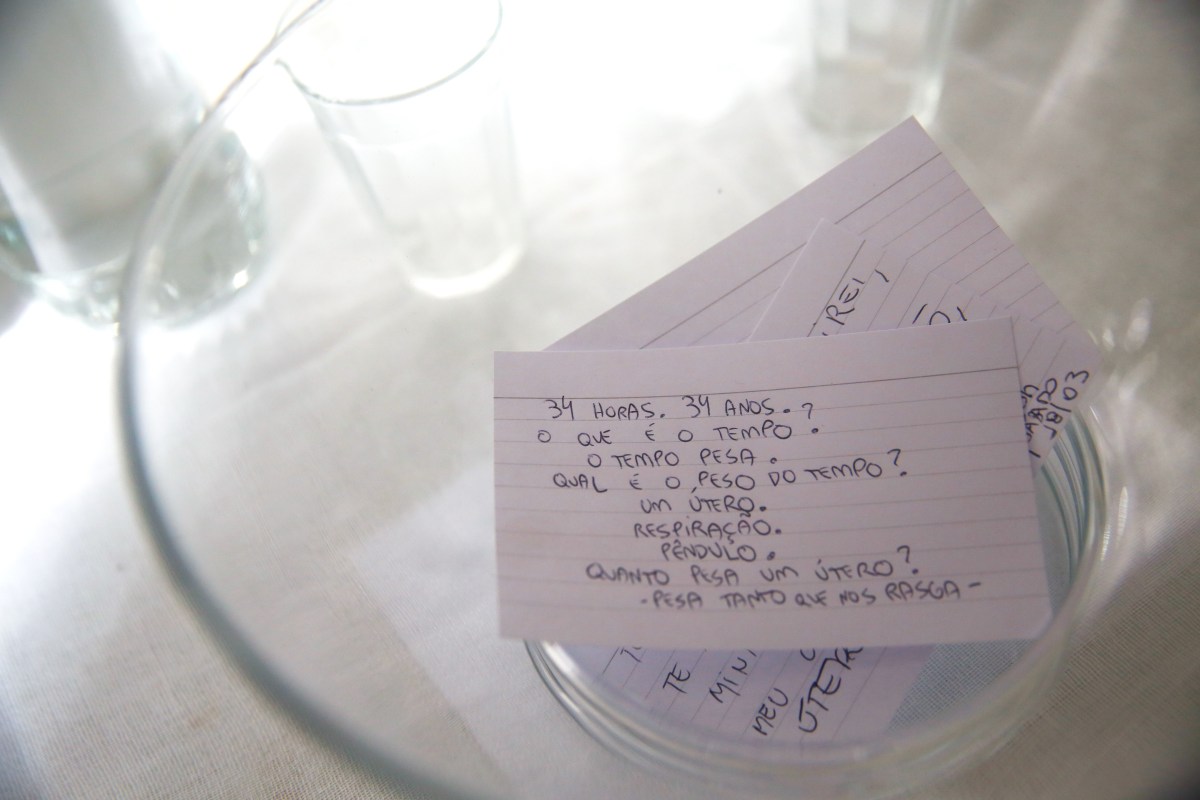 34 HORAS. 34 ANOS.
O QUE É O TEMPO?
O TEMPO PESA.
QUAL É O PESO DO TEMPO?
UM ÚTERO.
RESPIRAÇÃO.
PÊNDULO.
QUANTO PESA UM ÚTERO?
-PESA TANTO QUE NOS RASGA-
TE
MEU
18/03